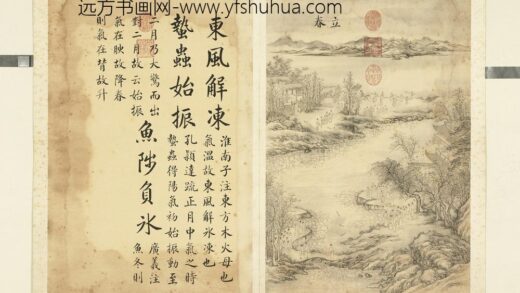 远方书画网-www.yfshuhua.com
立春
東風解凍
淮南子注東方木火母也
氣溫故東風解冰凍也
蟄蟲始振
孔穎達疏正月中氣之時
蟄蟲得陽氣初始振動至
二月乃大驚而出
對二月故云始振
魚陟負冰
廣義注
魚冬則
氣在腴故降春
則氣在背故升